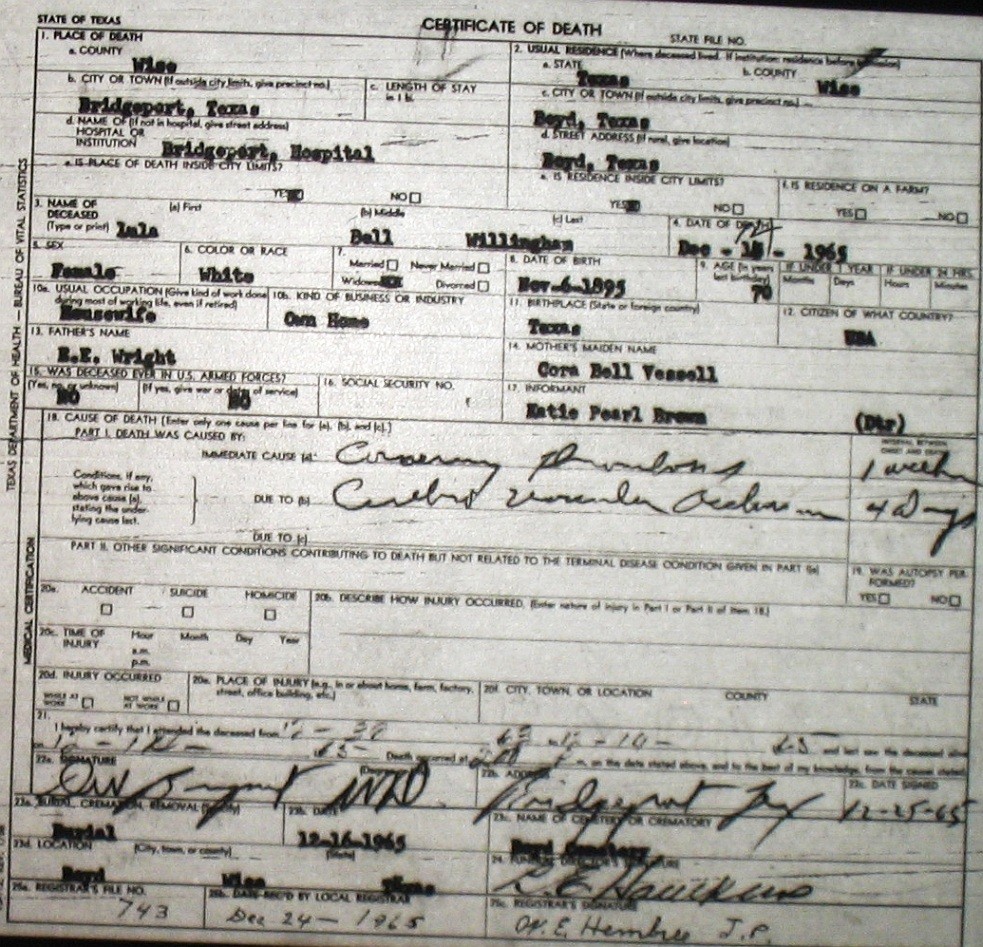 STATE OF TEXAS
CERTIFICATE OF DEATH
STATE FILE NO.
1. PLACE OF DEATH
a. COUNTY
Wise
2. USUAL RESIDENCE (Where deceased lived. If institution: residence before admission)
a. STATE
Texas
b. COUNTY
Wise
b. CITY OR TOWN (If outside city limits, give precinct no.)
Bridgeport, Texas
c. LENGTH OF STAY
in 1 b.
c. CITY OR TOWN (If outside city limits, give precinct no.)
Boyd, Texas
d. NAME OF (If not in hospital, give street address)
HOSPITAL OR
INSTITUTION
Bridgeport, Hospital
d. STREET ADDRESS (If rural, give location)
Boyd, Texas
e. IS PLACE OF DEATH INSIDE CITY LIMITS?
YES NO
e. IS RESIDENCE INSIDE CITY LIMITS?
YES NO
f. IS RESIDENCE ON A FARM?
YES NO
3. NAME OF
DECEASED
(Type or print)
(a) First
Lula
(b) Middle
Bell
(c) Last
Willingham
4. DATE OF DEATH
Dec - 14 - 1965
5. SEX
Female
6. COLOR OR RACE
White
7.
Married Never Married
Widowed Divorced
8. DATE OF BIRTH
Nov-6-1895
9. AGE (In years
last birthday)
70
IF UNDER 1 YEAR
Months Days
IF UNDER 24 HRS.
Hours Minutes
10a. USUAL OCCUPATION (Give kind of work done
during most of working life, even if retired)
Housewife
10b. KIND OF BUSINESS OR INDUSTRY
Own Home
11. BIRTHPLACE (State or foreign country)
Texas
12. CITIZEN OF WHAT COUNTRY?
USA
13. FATHER'S NAME
Wright
14. MOTHER'S MAIDEN NAME
Cora Bell Vessell
15. WAS DECEASED EVER IN U.S. ARMED FORCES?
(Yes, no, or unknown)
NO
(If yes, give war or dates of service)
NO
16. SOCIAL SECURITY NO.
17. INFORMANT
Katie Pearl Brown (Dtr)
18. CAUSE OF DEATH [Enter only one cause per line for (a), (b), and (c).]
PART I. DEATH WAS CAUSED BY:
INTERVAL BETWEEN
ONSET AND DEATH
IMMEDIATE CAUSE (a)
Coronary Thrombosis
1 week
Conditions, if any,
which gave rise to
above cause (a),
stating the under-
lying cause last.
DUE TO (b)
Cerebro vascular Occlusion
4 Days
DUE TO (c)
PART II. OTHER SIGNIFICANT CONDITIONS CONTRIBUTING TO DEATH BUT NOT RELATED TO THE TERMINAL DISEASE CONDITION GIVEN IN PART I(a)
19. WAS AUTOPSY PER-
FORMED?
YES NO
20a. ACCIDENT SUICIDE HOMICIDE
20b. DESCRIBE HOW INJURY OCCURRED. (Enter nature of injury in Part I or Part II of item 18.)
20c. TIME OF
INJURY
Hour Month Day Year
a.m.
p.m.
20d. INJURY OCCURRED
WHILE AT
WORK
NOT WHILE
AT WORK
20e. PLACE OF INJURY (e.g., in or about home, farm, factory,
street, office building, etc.)
20f. CITY, TOWN, OR LOCATION COUNTY STATE
21.
I hereby certify that I attended the deceased from
and last saw the deceased alive
on 12-14- 65 Death occurred at m., on the date stated above, and to the best of my knowledge, from the causes stated.
22a. SIGNATURE
MD.
22b. ADDRESS
Bridgeport Tex
22c. DATE SIGNED
12-25-65
23a. BURIAL, CREMATION, REMOVAL (Specify)
Burial
23b. DATE
12-16-1965
23c. NAME OF CEMETERY OR CREMATORY
Boyd Cemetery
23d. LOCATION (City, town, or county) (State)
Boyd Wise Texas
24. FUNERAL DIRECTOR'S SIGNATURE
L.E. Hawkins
25a. REGISTRAR'S FILE NO.
743
25b. DATE REC'D BY LOCAL REGISTRAR
Dec 24 - 1965
25c. REGISTRAR'S SIGNATURE
W.E. Hembree J.P.
TEXAS DEPARTMENT OF HEALTH — BUREAU OF VITAL STATISTICS
MEDICAL CERTIFICATION